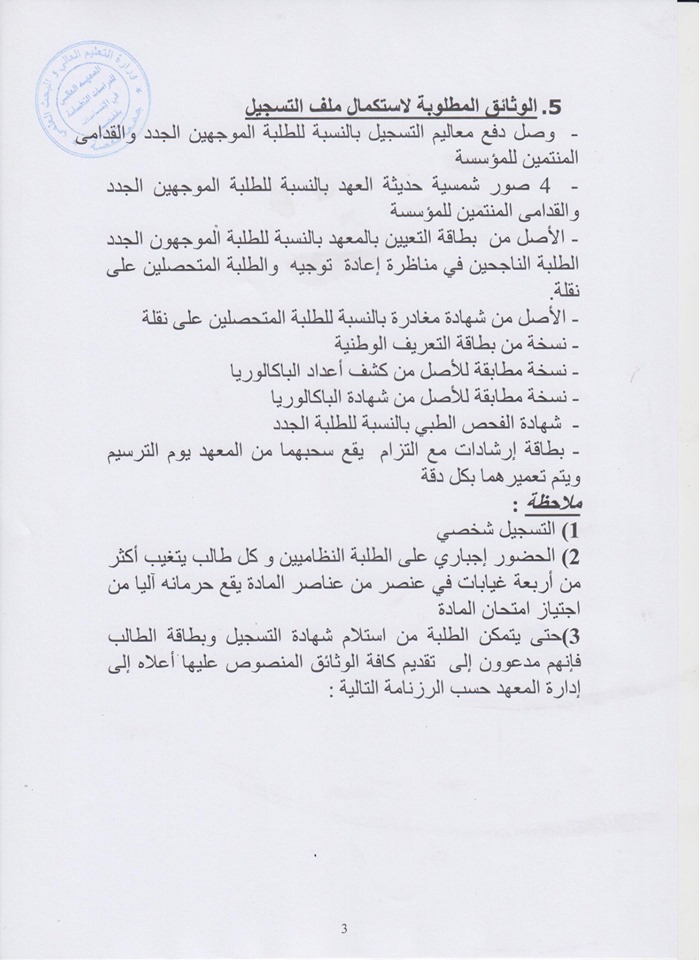 وزارة التعليم العالي و البحث العلمي
المعهد العالي
للدراسات التطبيقية
في الإنسانيات
5. الوثائق المطلوبة لاستكمال ملف التسجيل
- وصل دفع معاليم التسجيل بالنسبة للطلبة الموجهين الجدد والقدامى
المنتمين للمؤسسة
- 4 صور شمسية حديثة العهد بالنسبة للطلبة الموجهين الجدد
والقدامى المنتمين للمؤسسة
- الأصل من بطاقة التعيين بالمعهد بالنسبة للطلبة الموجهون الجدد
الطلبة الناجحين في مناظرة إعادة توجيه والطلبة المتحصلين على
نقلة.
- الأصل من شهادة مغادرة بالنسبة للطلبة المتحصلين على نقلة
- نسخة من بطاقة التعريف الوطنية
- نسخة مطابقة للأصل من كشف أعداد الباكالوريا
- نسخة مطابقة للأصل من شهادة الباكالوريا
- شهادة الفحص الطبي بالنسبة للطلبة الجدد
- بطاقة إرشادات مع التزام يقع سحبهما من المعهد يوم الترسيم
ويتم تعميرهما بكل دقة
ملاحظة :
1) التسجيل شخصي
2) الحضور إجباري على الطلبة النظاميين و كل طالب يتغيب أكثر
من أربعة غيابات في عنصر من عناصر المادة يقع حرمانه آليا من
اجتياز امتحان المادة
3)حتى يتمكن الطلبة من استلام شهادة التسجيل وبطاقة الطالب
فإنهم مدعوون إلى تقديم كافة الوثائق المنصوص عليها أعلاه إلى
إدارة المعهد حسب الرزنامة التالية :
3